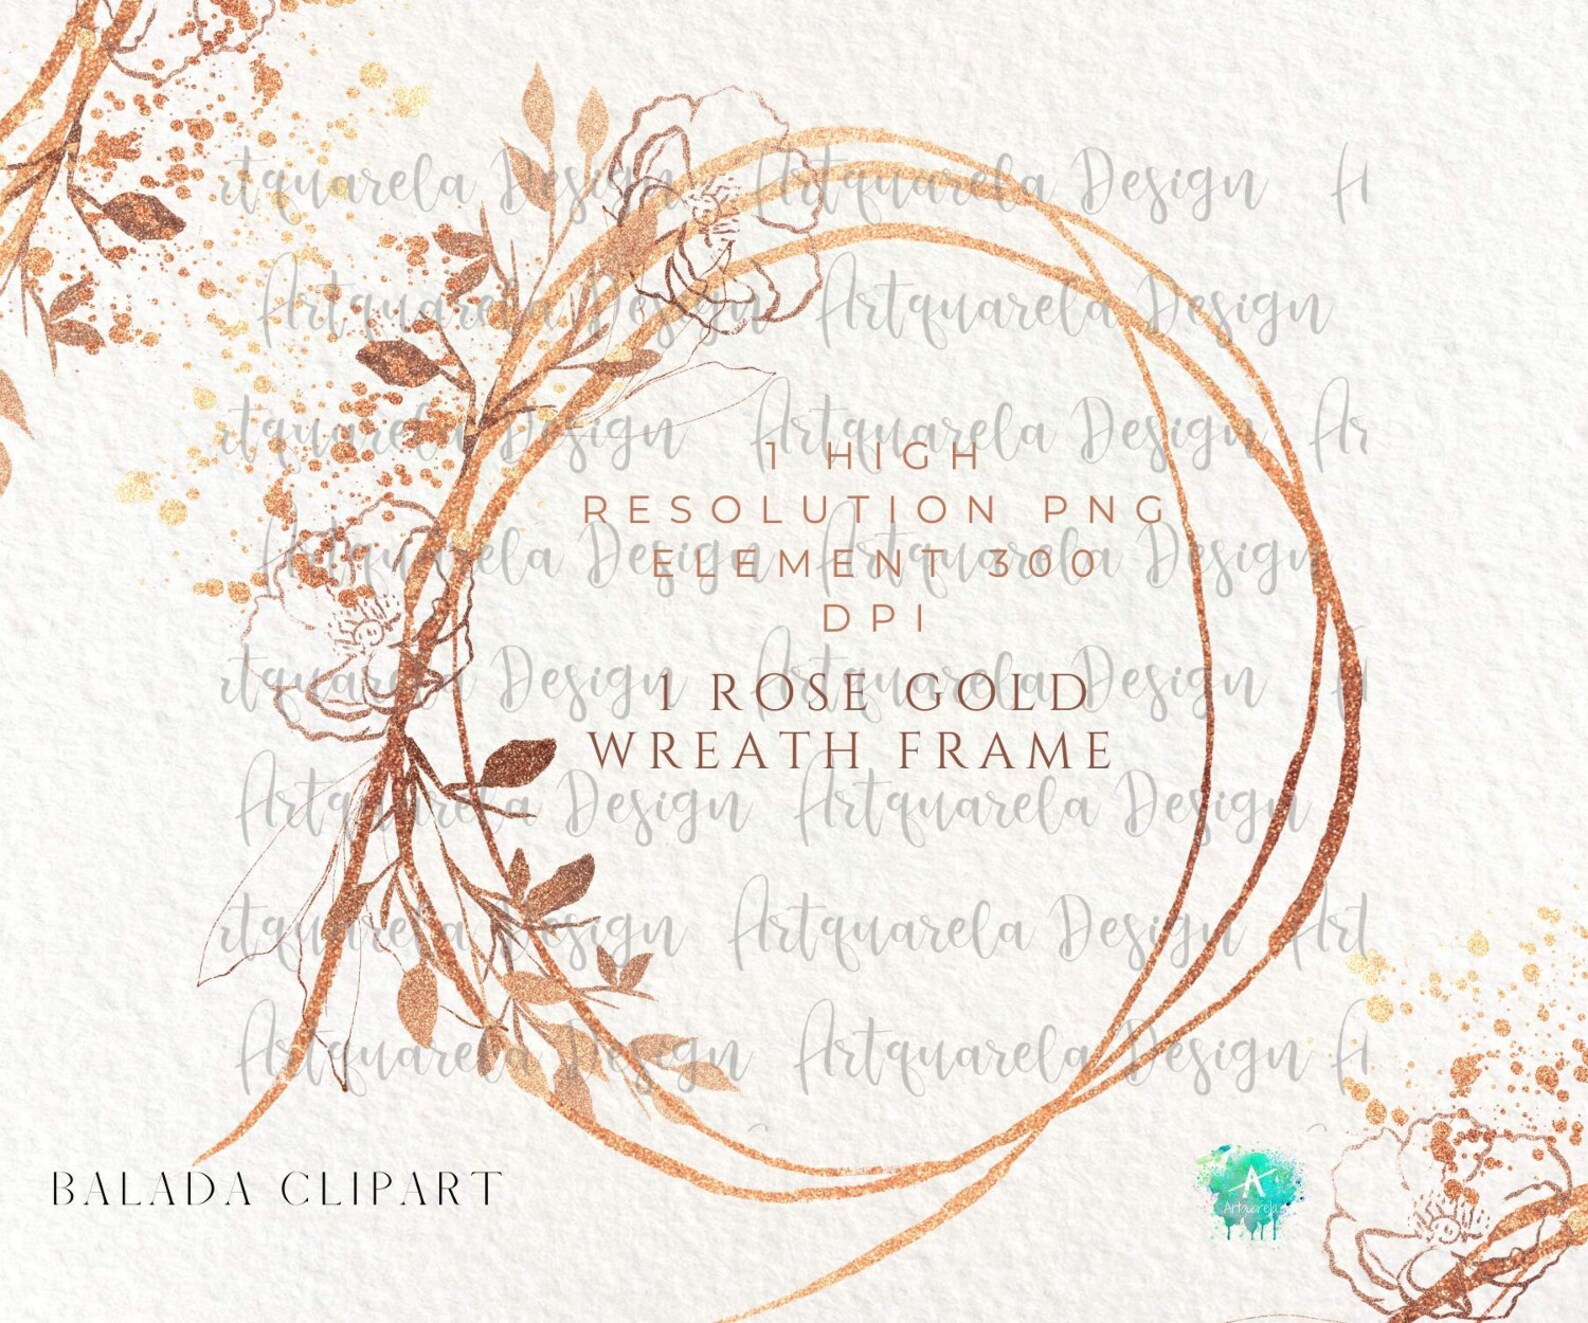 rtquarela Design Artquarela Design A
Artquarela Design Artquarela Design
rtquarela Design Artquarela Design Ar
1 HIGH
RESOLUTION PNG
Artquarela Design Artquarela Design
ELEMENT 300
DPI
rtquarela Design Artquarela Design A
1 ROSE GOLD
WREATH FRAME
Artquarela Design Artquarela Design
rtquarela Design Artquarela Design Art
Artquarela Design Artquarela Design A
BALADA CLIPART
A
Artquarela